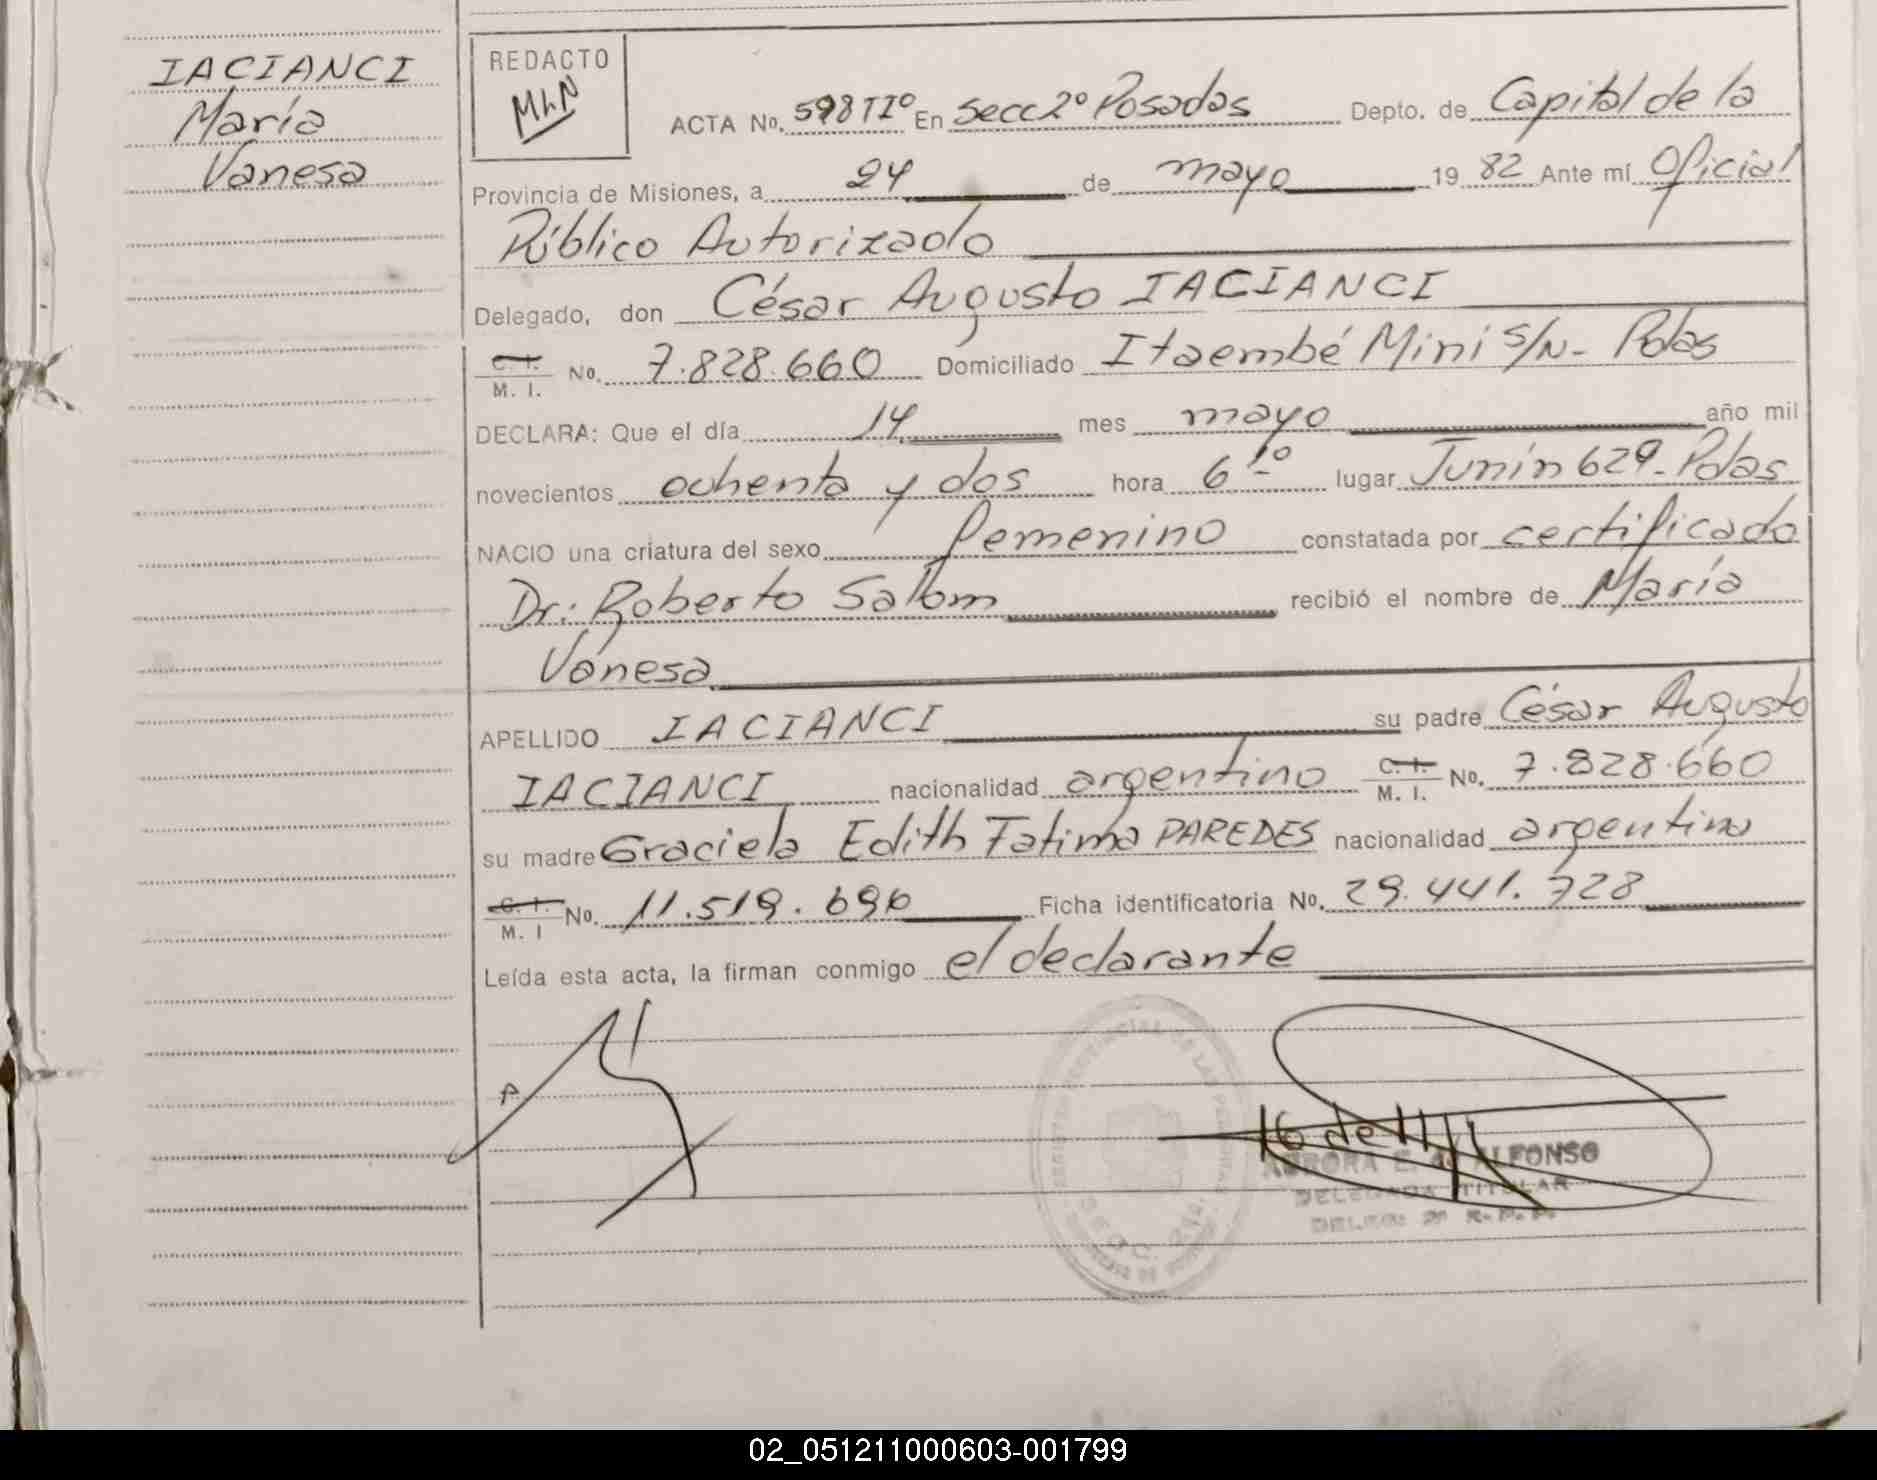 IACIANCI
María
Vanesa
REDACTO
MLN
ACTA No. 598 TIº En Secc 2º Posadas Depto. de Capital de la
Provincia de Misiones, a 24 de mayo 19 82 Ante mí Oficial
Público Autorizado
Delegado, don César Augusto IACIANCI
C. I. M. I. No. 7.828.660 Domiciliado Itaembé Mini s/N- Pdas
DECLARA: Que el día 14 mes mayo año mil
novecientos ochenta y dos hora 6 lugar Junín 629- Pdas
NACIO una criatura del sexo femenino constatada por certificado
Dr: Roberto Salom recibió el nombre de María
Vanesa
APELLIDO IACIANCI su padre César Augusto
IACIANCI nacionalidad argentino C. I. M. I. No. 7.828.660
su madre Graciela Edith Fatima PAREDES nacionalidad argentina
C. I. M. I No. 11.519.696 Ficha identificatoria No. 29.441.728
Leída esta acta, la firman conmigo el declarante
AURORA E. de ALFONSO
DELEGADA TITULAR
02_051211000603-001799